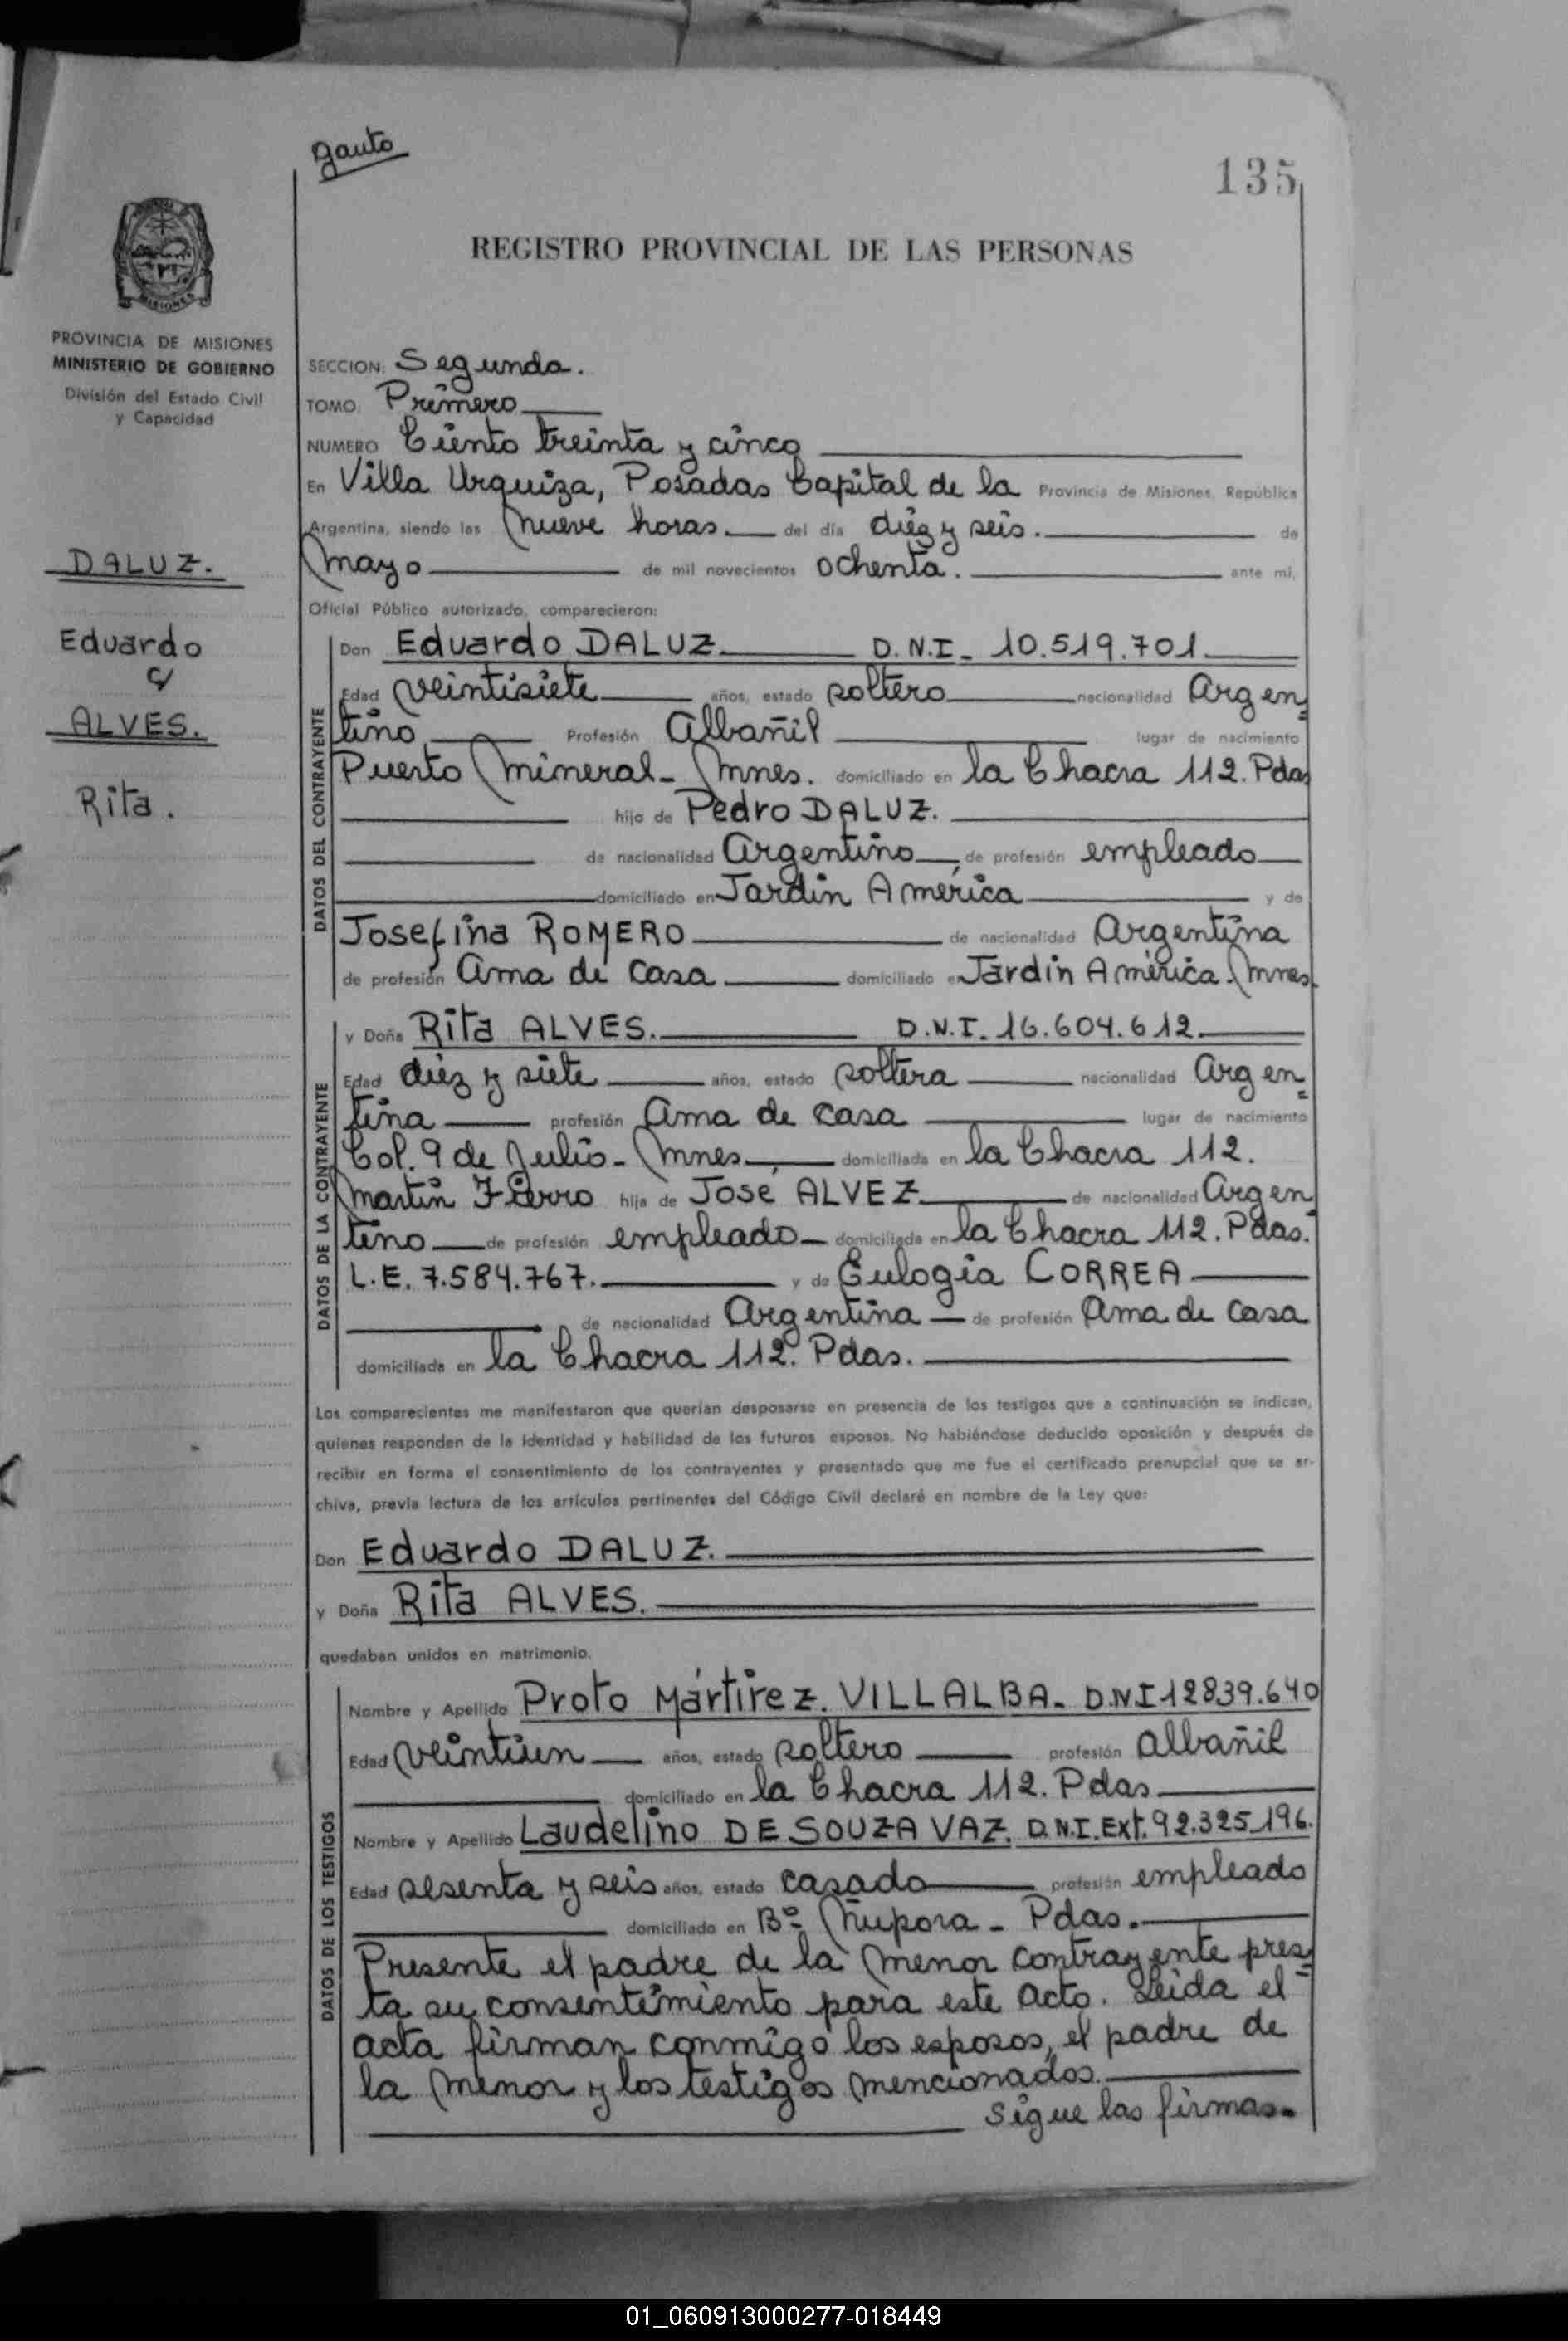 gauto
135
REGISTRO PROVINCIAL DE LAS PERSONAS
MISIONES
PROVINCIA DE MISIONES
MINISTERIO DE GOBIERNO
División del Estado Civil
y Capacidad
DALUZ.
Eduardo
c/
ALVES.
Rita.
SECCION: Segunda.
TOMO: Primero
NUMERO Ciento treinta y cinco
En Villa Urquiza, Posadas Capital de la Provincia de Misiones, República
Argentina, siendo las nueve horas. del día diez y seis. de
mayo de mil novecientos ochenta. ante mi,
Oficial Público autorizado, comparecieron:
DATOS DEL CONTRAYENTE
Don Eduardo DALUZ D.N.I- 10.519.701
Edad veintisiete años, estado soltero nacionalidad Argen=
tino Profesión Albañil lugar de nacimiento
Puerto Mineral- Mnes. domiciliado en la Chacra 112. Pdas
hijo de Pedro DALUZ.
de nacionalidad Argentino de profesión empleado
domiciliado en Jardín América y de
Josefina ROMERO de nacionalidad Argentina
de profesión Ama de casa domiciliado en Jardín América. Mnes.
DATOS DE LA CONTRAYENTE
y Doña Rita ALVES. D.N.I. 16.604.612
Edad diez y siete años, estado soltera nacionalidad Argen=
tina profesión Ama de casa lugar de nacimiento
Col. 9 de Julio- Mnes domiciliada en la Chacra 112.
Martín Fierro hija de José ALVEZ de nacionalidad Argen
tino de profesión empleado domiciliado en la Chacra 112. Pdas.
L.E. 7.584.767. y de Eulogia CORREA
de nacionalidad Argentina de profesión Ama de casa
domiciliada en la Chacra 112. Pdas.
Los comparecientes me manifestaron que querían desposarse en presencia de los testigos que a continuación se indican,
quienes responden de la identidad y habilidad de los futuros esposos. No habiéndose deducido oposición y después de
recibir en forma el consentimiento de los contrayentes y presentado que me fue el certificado prenupcial que se ar-
chiva, previa lectura de los artículos pertinentes del Código Civil declaré en nombre de la Ley que:
Don Eduardo DALUZ.
y Doña Rita ALVES.
quedaban unidos en matrimonio.
DATOS DE LOS TESTIGOS
Nombre y Apellido Proto Mártirez. VILLALBA- D.N.I 12839.640
Edad veintiun años, estado soltero profesión albañil
domiciliado en la Chacra 112. Pdas
Nombre y Apellido Laudelino DE SOUZA VAZ. D.N.I. Ext. 92.325.196.
Edad sesenta y seis años, estado casado profesión empleado
domiciliado en Bº Ñupora - Pdas.
Presente el padre de la menor contrayente pres=
ta su consentimiento para este acto. Leida el
acta firman conmigo los esposos, el padre de
la menor y los testigos mencionados.
Sigue las firmas.
01_060913000277-018449